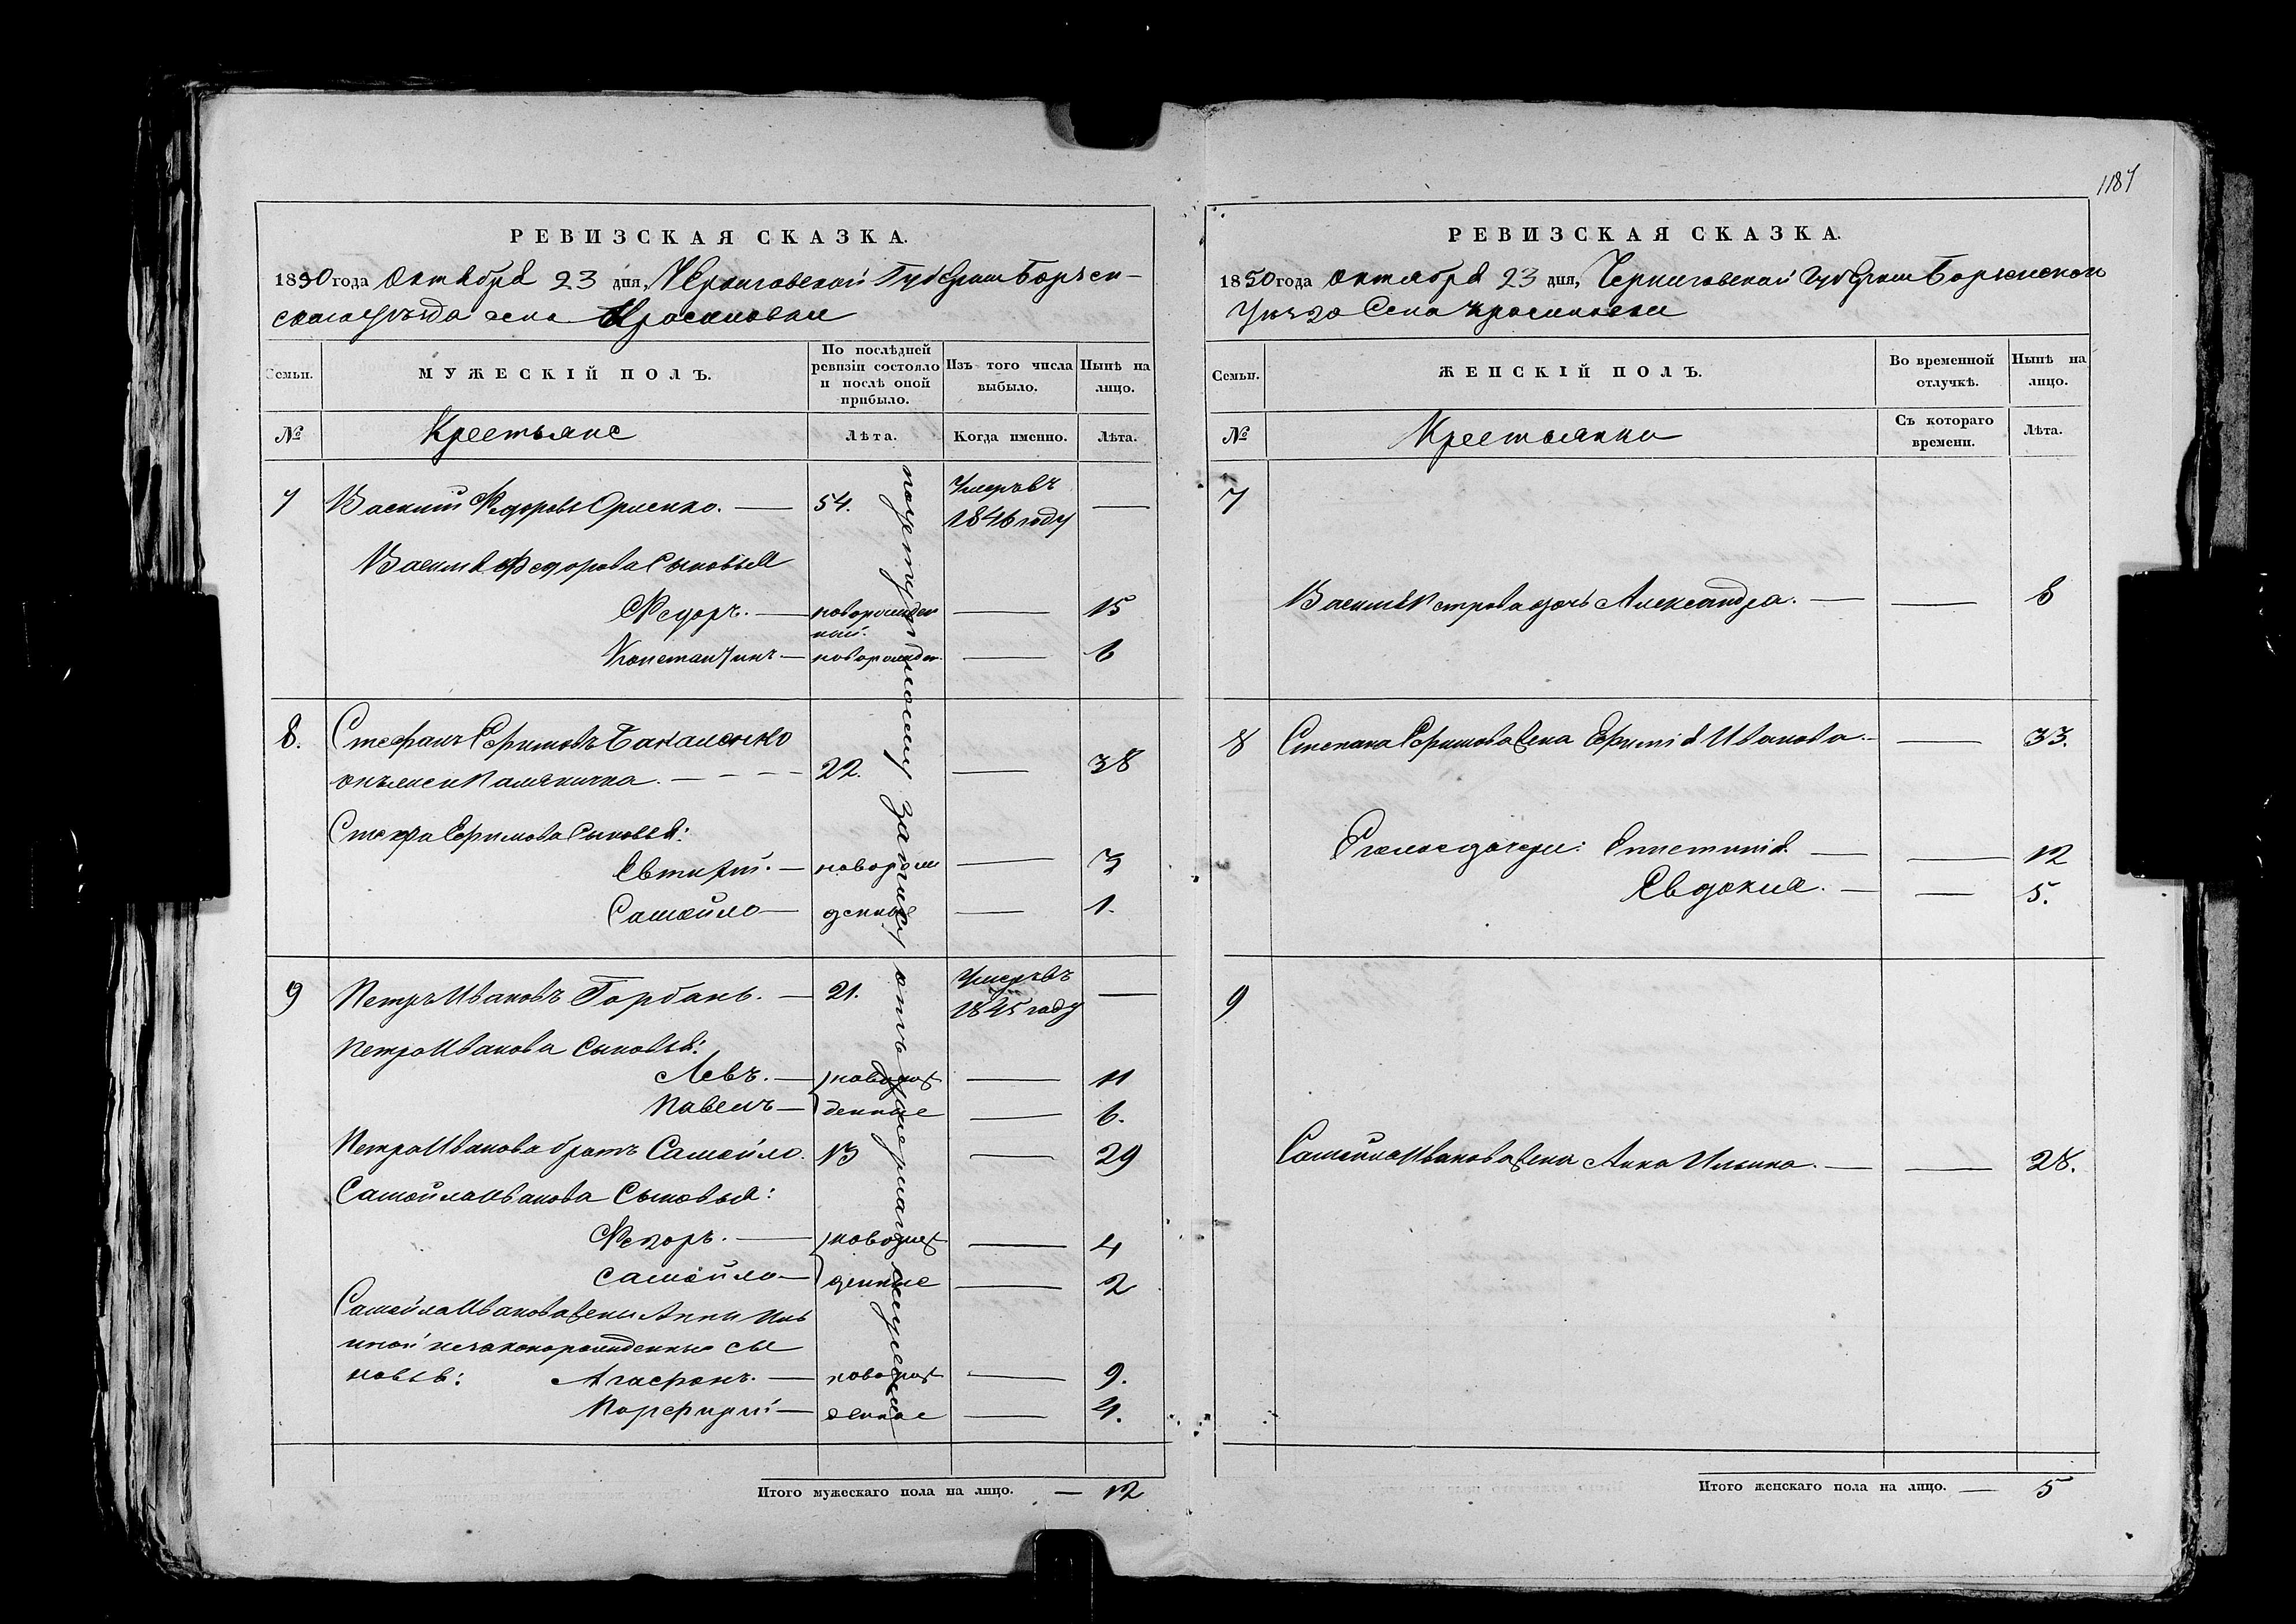 1187
РЕВИЗСКАЯ СКАЗКА.
1850 года Октября 23 дня, Черниговской Губернии Борзен-
скаго уѣзда села Красиловки
Семьи.
МУЖЕСКІЙ ПОЛЪ.
По послѣдней ревизіи состояло и послѣ оной прибыло.
Изъ того числа выбыло.
Нынѣ на лицо.
№
Крестьяне
Лѣта.
Когда именно.
Лѣта.
7 Василий Федоровъ 54. Умеръ въ 1846 году —
Василия Федорова Сыновья
Федоръ. — новорожденный. — 15
Константинъ — новорожден. — 6
8. Стефанъ Ефимовъ Бакаленко
онъ же и 22. — 38
Ефимова Сыновья:
Евтифий. — новорож — 3
Самойло — денные — 1.
9 Петръ Ивановъ Горбань. — 21. Умеръ въ 1845 году —
Петра Иванова Сыновья:
Левъ. — новорож — 11
Павелъ — денные — 6.
Петра Иванова братъ Самойло. 13 — 29
Самойла Иванова Сыновья:
Федоръ. — новорож — 4
Самойло — денные — 2
Самойла Иванова жены Анны Иль
иной незаконорожденные сы
новья: Агафонъ. — новорож — 9.
Порфирий — денные — 4.
по сему записану отъ
Итого мужескаго пола на лицо. — 12
РЕВИЗСКАЯ СКАЗКА.
1850 года Октября 23 дня, Черниговской Губернии Борзенскаго
Уѣзда Села Красиловки
Семьи.
ЖЕНСКІЙ ПОЛЪ.
Во временной отлучкѣ.
Нынѣ на лицо.
№
Крестьянки
Съ котораго времени.
Лѣта.
7
Василия дочь Александра. — — 8
8 Степана Ефимова жена Ефимия Иванова. — — 33.
Его же дочери: — — 12
Евдокия. — — 5.
9
Самойла Иванова жена Анна Ильина. — — 28.
Итого женскаго пола на лицо. — 5